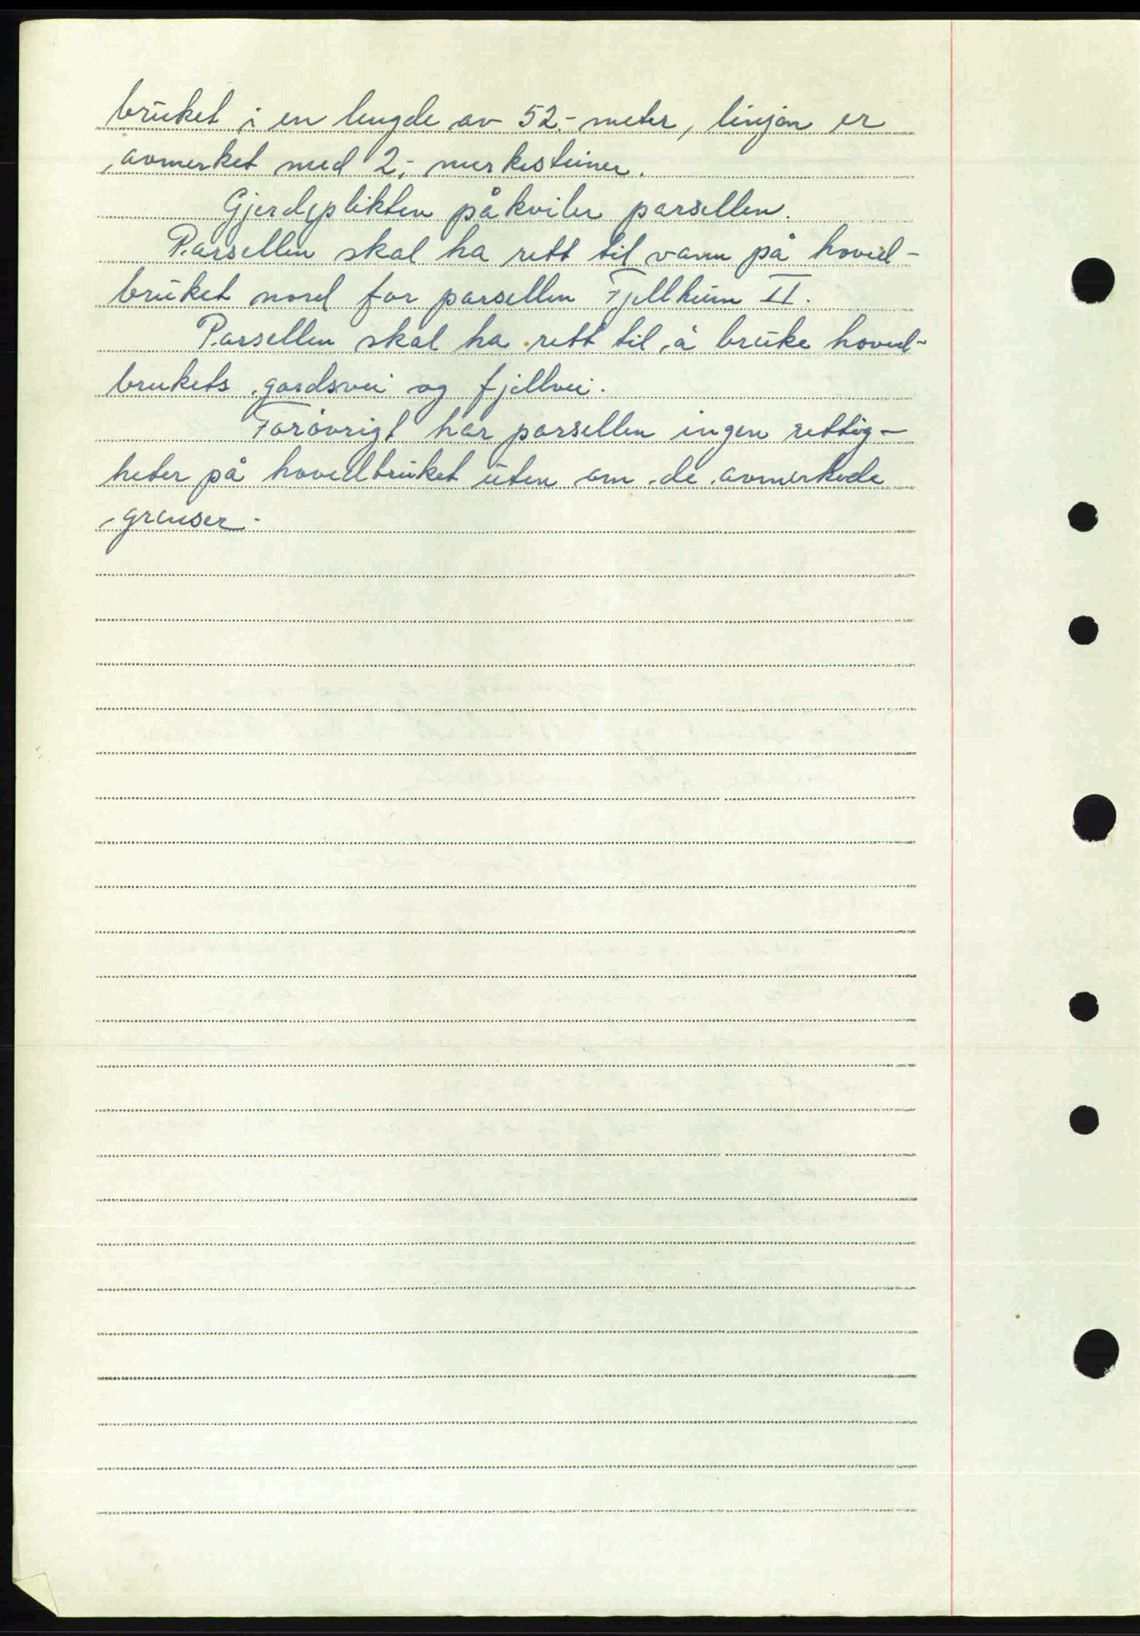 bruket i en lengde av 52.- meter, linjen er
avmerket med 2.- merkesteiner.
Gjerdeplikten påkviler parsellen.
Parsellen skal ha rett til vann på hoved-
bruket nord for parsellen Fjellheim II.
Parsellen skal ha rett til å bruke hoved-
brukets gardsvei og fjellvei.
Forøvrigt har parsellen ingen rettig-
heter på hovedbruket uten om de avmerkede
grenser.